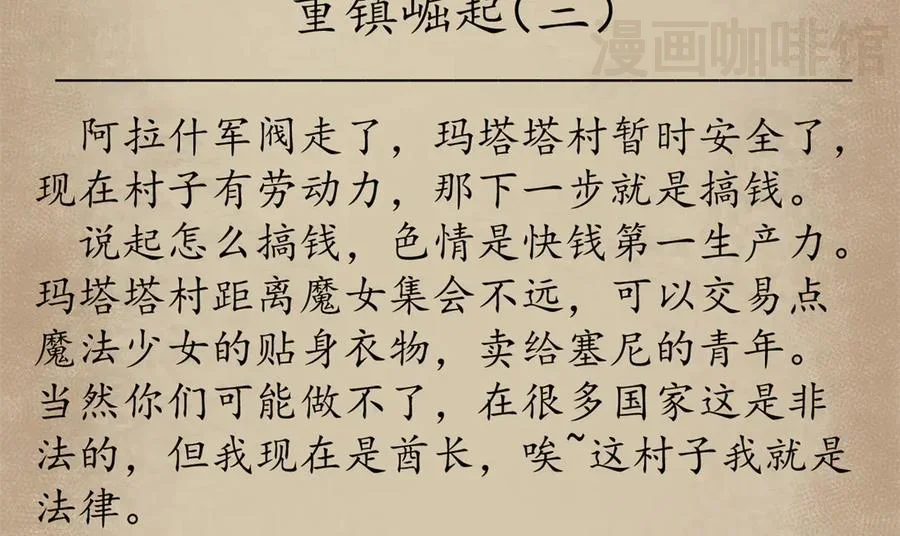 重镇崛起(三)
漫画咖啡馆
阿拉什军阀走了，玛塔塔村暂时安全了，
现在村子有劳动力，那下一步就是搞钱。
说起怎么搞钱，色情是快钱第一生产力。
玛塔塔村距离魔女集会不远，可以交易点
魔法少女的贴身衣物，卖给塞尼的青年。
当然你们可能做不了，在很多国家这是非
法的，但我现在是酋长，唉~这村子我就是
法律。